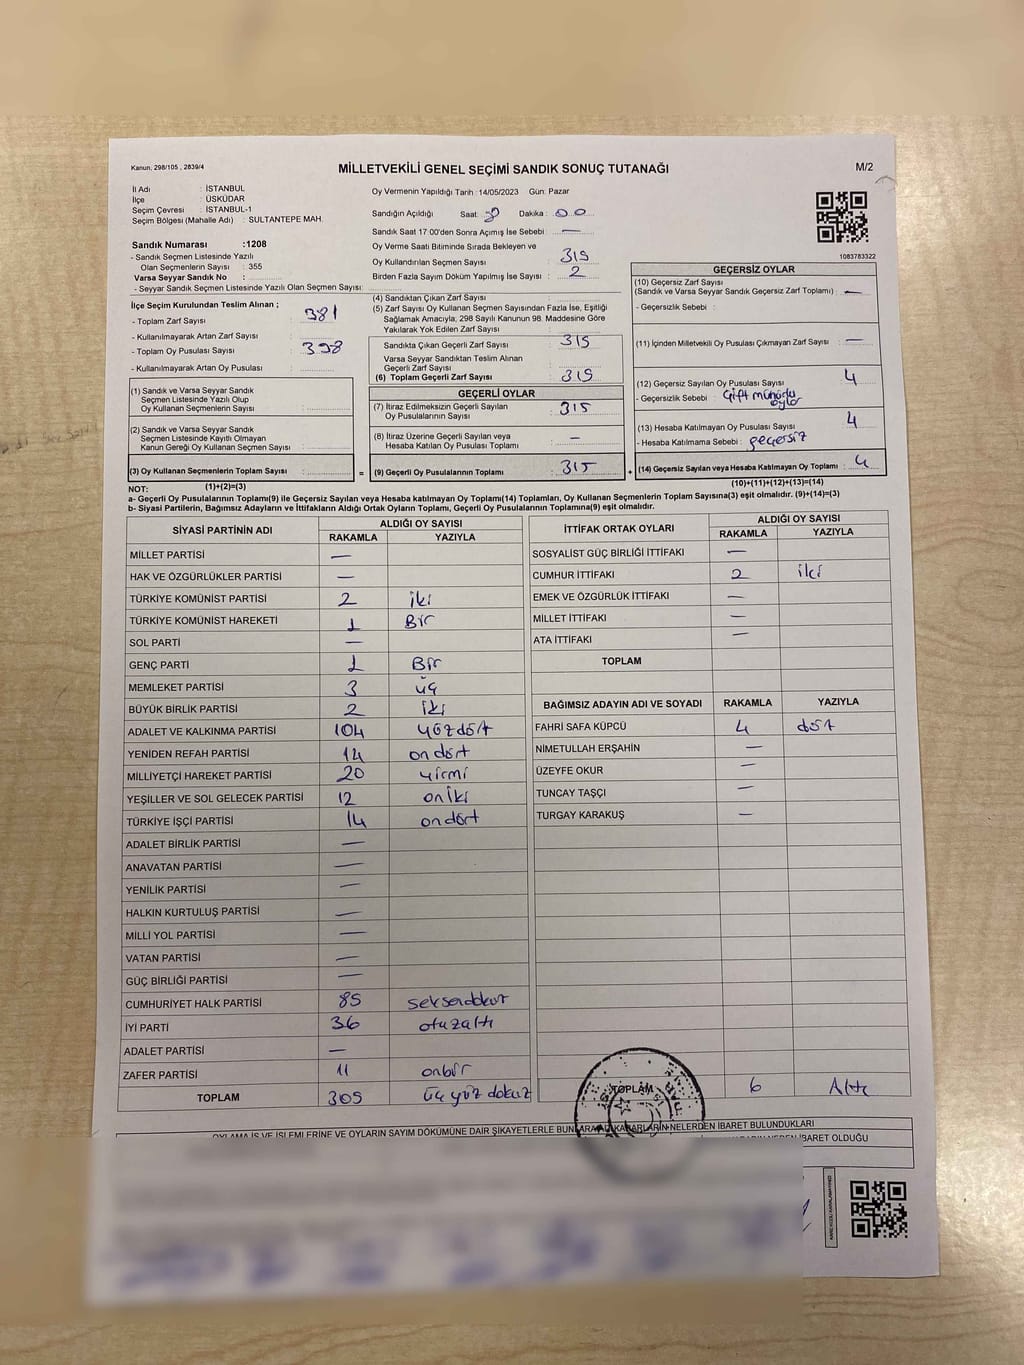 Kanun; 298/105 , 2839/4
MİLLETVEKİLİ GENEL SEÇİMİ SANDIK SONUÇ TUTANAĞI
M/2
İl Adı : İSTANBUL
İlçe : ÜSKÜDAR
Seçim Çevresi : İSTANBUL-1
Seçim Bölgesi (Mahalle Adı) : SULTANTEPE MAH.
Oy Vermenin Yapıldığı Tarih : 14/05/2023 Gün: Pazar
Sandığın Açıldığı Saat: Dakika: 00
Sandık Saat 17:00'den Sonra Açımış İse Sebebi : —
Oy Verme Saati Bitiminde Sırada Bekleyen ve
Oy Kullandırılan Seçmen Sayısı 319
Birden Fazla Sayım Döküm Yapılmış İse Sayısı : 2
1083783322
Sandık Numarası :1208
- Sandık Seçmen Listesinde Yazılı
Olan Seçmenlerin Sayısı : 355
Varsa Seyyar Sandık No :
- Seyyar Sandık Seçmen Listesinde Yazılı Olan Seçmen Sayısı:
İlçe Seçim Kurulundan Teslim Alınan ;
- Toplam Zarf Sayısı : 381
- Kullanılmayarak Artan Zarf Sayısı :
- Toplam Oy Pusulası Sayısı : 398
- Kullanılmayarak Artan Oy Pusulası :
(1) Sandık ve Varsa Seyyar Sandık
Seçmen Listesinde Yazılı Olup
Oy Kullanan Seçmenlerin Sayısı :
(2) Sandık ve Varsa Seyyar Sandık
Seçmen Listesinde Kayıtlı Olmayan
Kanun Gereği Oy Kullanan Seçmen Sayısı :
(3) Oy Kullanan Seçmenlerin Toplam Sayısı :
(1)+(2)=(3)
(4) Sandıktan Çıkan Zarf Sayısı :
(5) Zarf Sayısı Oy Kullanan Seçmen Sayısından Fazla İse, Eşitliği
Sağlamak Amacıyla; 298 Sayılı Kanunun 98. Maddesine Göre
Yakılarak Yok Edilen Zarf Sayısı :
Sandıkta Çıkan Geçerli Zarf Sayısı : 315
Varsa Seyyar Sandıktan Teslim Alınan
Geçerli Zarf Sayısı :
(6) Toplam Geçerli Zarf Sayısı : 319
GEÇERLİ OYLAR
(7) İtiraz Edilmeksizin Geçerli Sayılan
Oy Pusulalarının Sayısı : 315
(8) İtiraz Üzerine Geçerli Sayılan veya
Hesaba Katılan Oy Pusulası Toplamı : —
= (9) Geçerli Oy Pusulalarının Toplamı : 315
GEÇERSİZ OYLAR
(10) Geçersiz Zarf Sayısı
(Sandık ve Varsa Seyyar Sandık Geçersiz Zarf Toplamı) : —
- Geçersizlik Sebebi :
(11) İçinden Milletvekili Oy Pusulası Çıkmayan Zarf Sayısı : —
(12) Geçersiz Sayılan Oy Pusulası Sayısı : 4
- Geçersizlik Sebebi : Çift mühürlü oylar
(13) Hesaba Katılmayan Oy Pusulası Sayısı : 4
- Hesaba Katılmama Sebebi : geçersiz
+ (14) Geçersiz Sayılan veya Hesaba Katılmayan Oy Toplamı : 4
(10)+(11)+(12)+(13)=(14)
NOT:
a- Geçerli Oy Pusulalarının Toplamı(9) ile Geçersiz Sayılan veya Hesaba katılmayan Oy Toplamı(14) Toplamları, Oy Kullanan Seçmenlerin Toplam Sayısına(3) eşit olmalıdır. (9)+(14)=(3)
b- Siyasi Partilerin, Bağımsız Adayların ve İttifakların Aldığı Ortak Oyların Toplamı, Geçerli Oy Pusulalarının Toplamına(9) eşit olmalıdır.
SİYASİ PARTİNİN ADI ALDIĞI OY SAYISI
RAKAMLA YAZIYLA
MİLLET PARTİSİ —
HAK VE ÖZGÜRLÜKLER PARTİSİ —
TÜRKİYE KOMÜNİST PARTİSİ 2 iki
TÜRKİYE KOMÜNİST HAREKETİ 1 Bir
SOL PARTİ —
GENÇ PARTİ 1 Bir
MEMLEKET PARTİSİ 3 üç
BÜYÜK BİRLİK PARTİSİ 2 iki
ADALET VE KALKINMA PARTİSİ 104 yüzdört
YENİDEN REFAH PARTİSİ 14 ondört
MİLLİYETÇİ HAREKET PARTİSİ 20 yirmi
YEŞİLLER VE SOL GELECEK PARTİSİ 12 oniki
TÜRKİYE İŞÇİ PARTİSİ 14 ondört
ADALET BİRLİK PARTİSİ —
ANAVATAN PARTİSİ —
YENİLİK PARTİSİ —
HALKIN KURTULUŞ PARTİSİ —
MİLLİ YOL PARTİSİ —
VATAN PARTİSİ —
GÜÇ BİRLİĞİ PARTİSİ —
CUMHURİYET HALK PARTİSİ 85
İYİ PARTİ 36 otuzaltı
ADALET PARTİSİ —
ZAFER PARTİSİ 11 onbir
TOPLAM 305 üçyüz dokuz
İTTİFAK ORTAK OYLARI ALDIĞI OY SAYISI
RAKAMLA YAZIYLA
SOSYALİST GÜÇ BİRLİĞİ İTTİFAKI —
CUMHUR İTTİFAKI 2 iki
EMEK VE ÖZGÜRLÜK İTTİFAKI —
MİLLET İTTİFAKI —
ATA İTTİFAKI —
TOPLAM
BAĞIMSIZ ADAYIN ADI VE SOYADI RAKAMLA YAZIYLA
FAHRİ SAFA KÜPCÜ 4 dört
NİMETULLAH ERŞAHİN —
ÜZEYFE OKUR —
TUNCAY TAŞÇI —
TURGAY KARAKUŞ —
TOPLAM 6 Altı
OYLAMA İŞ VE İŞLEMLERİNE VE OYLARIN SAYIM DÖKÜMÜNE DAİR ŞİKAYETLERLE BUNLARA AİT KARARLARIN NELERDEN İBARET BULUNDUKLARI
İBARET OLDUĞU